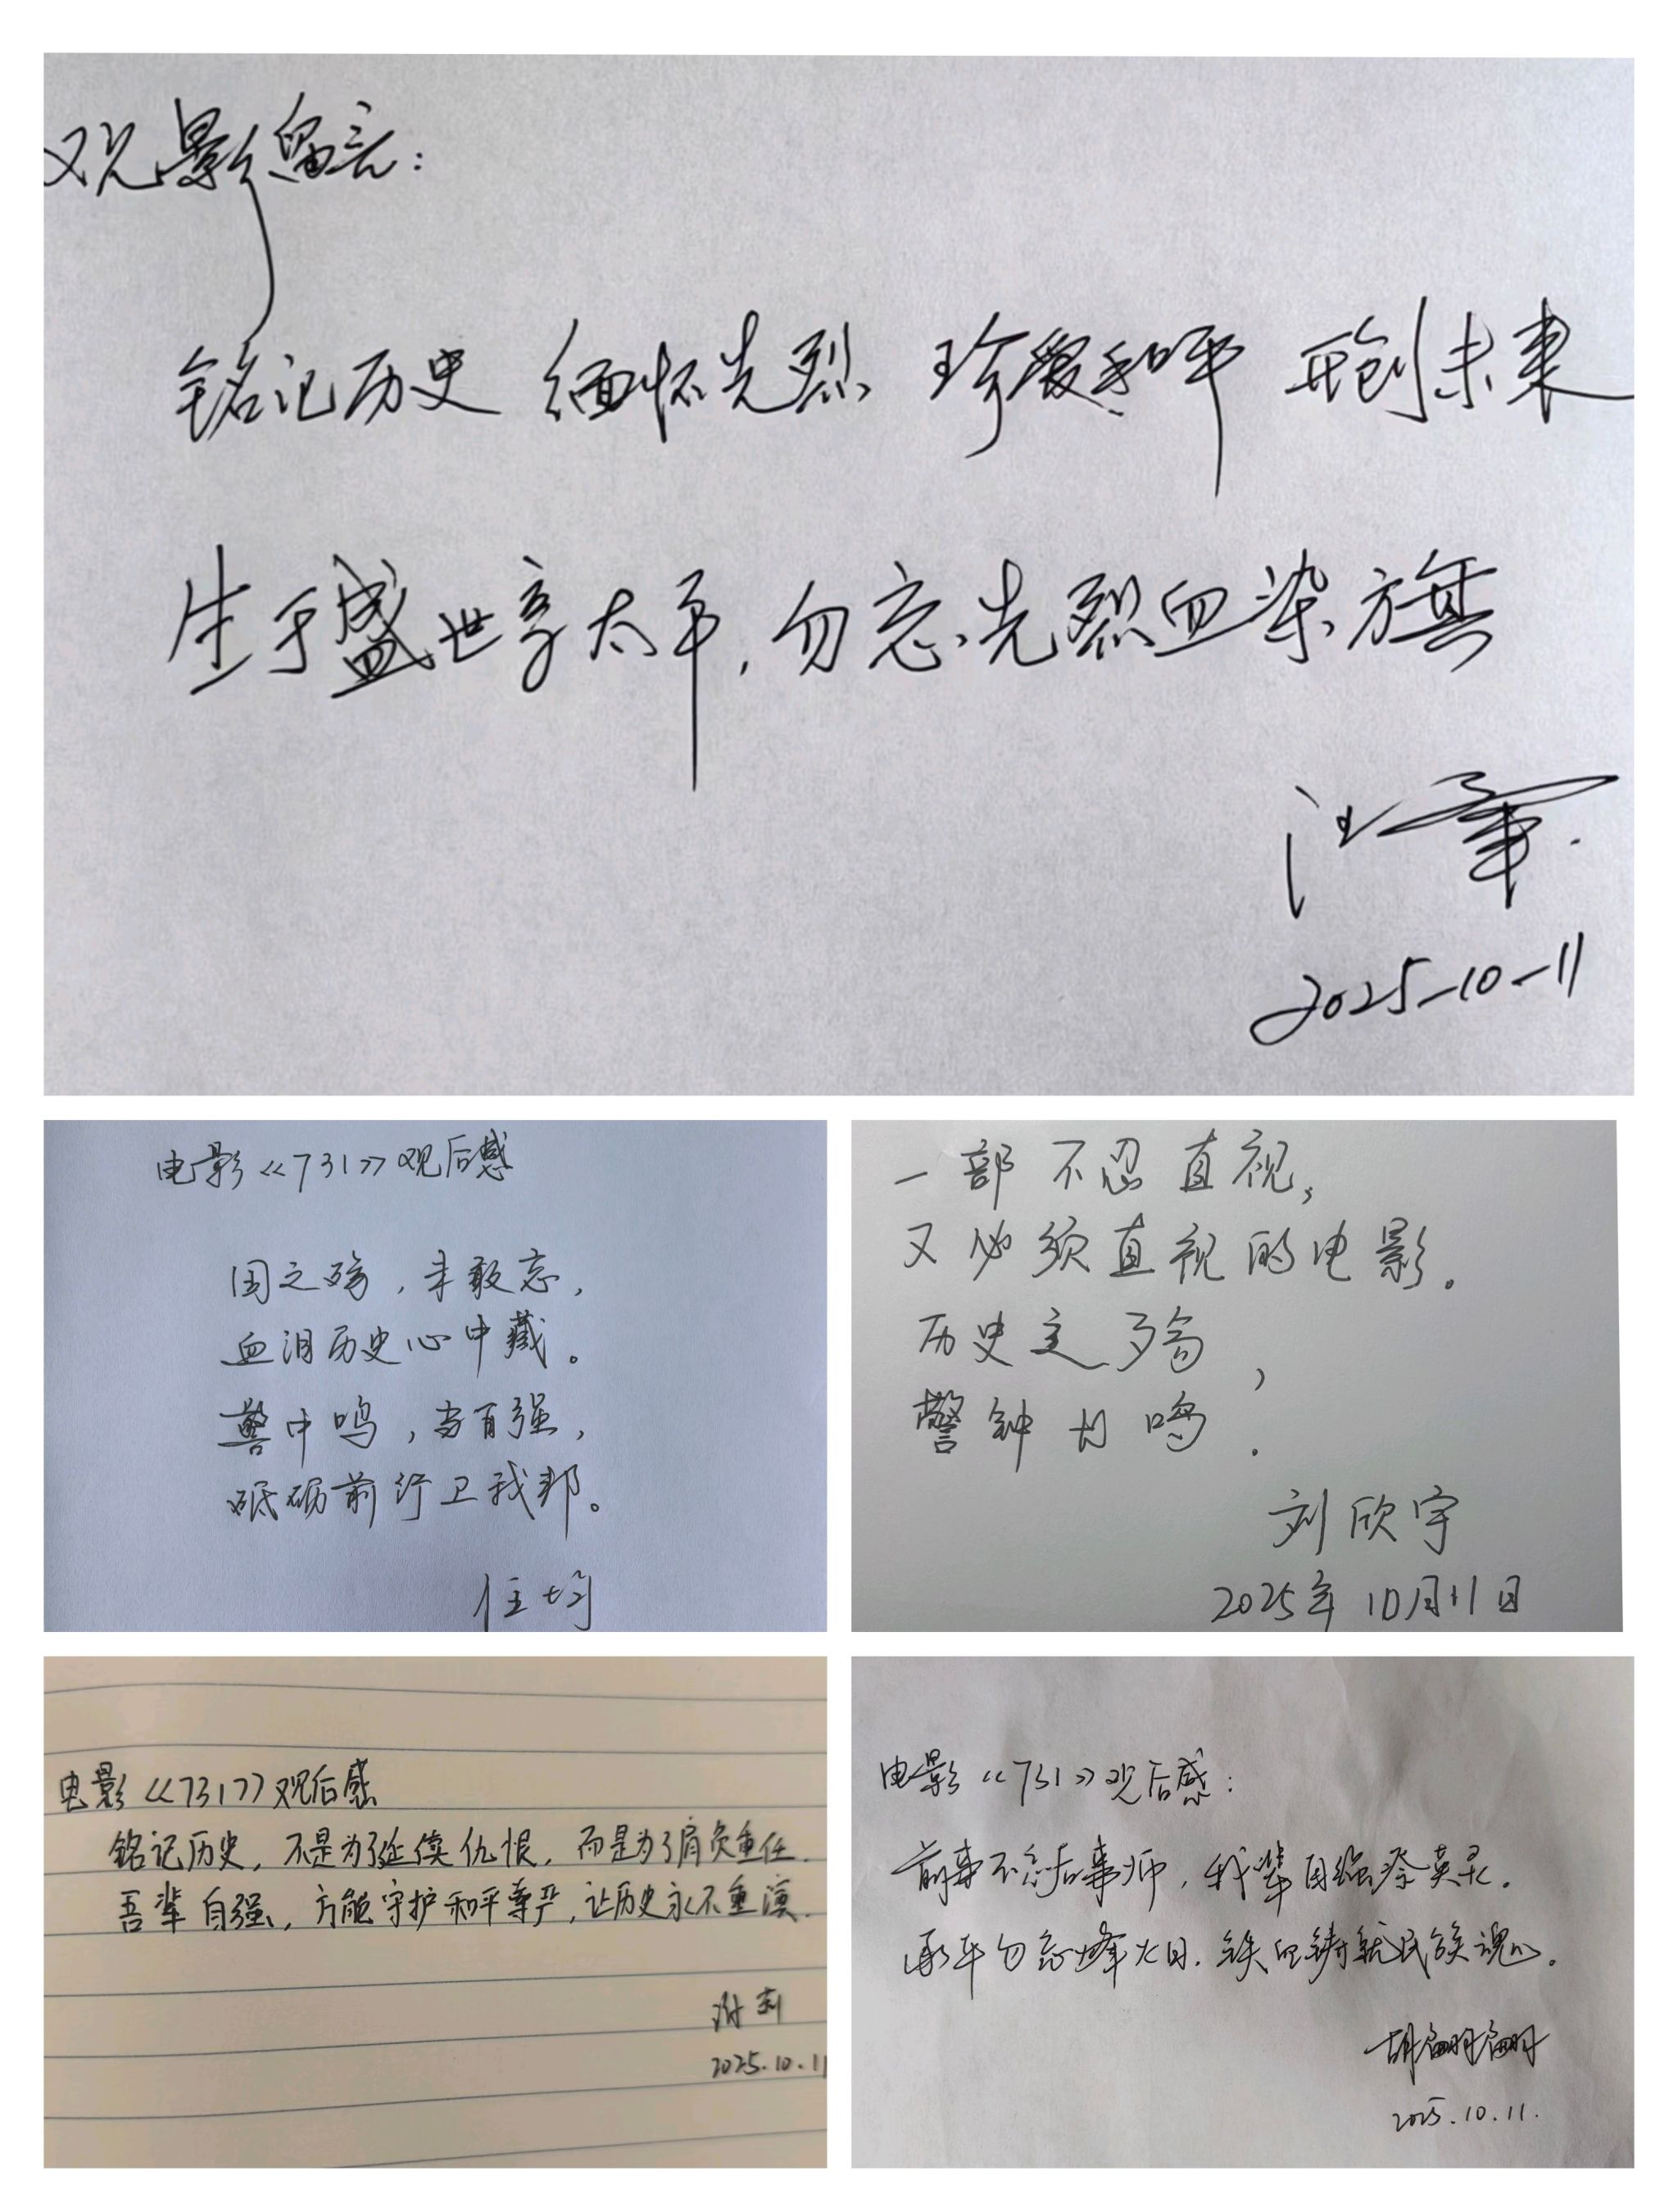 观影留言:
铭记历史 缅怀先烈 珍爱和平 开创未来
生于盛世享太平,勿忘先烈血染旗
2025-10-11
电影《731》观后感
国之殇,未敢忘,
血泪历史心中藏。
警中鸣,当自强,
砥砺前行卫我邦。
任均
一部不忍直视,
又必须直视的电影。
历史之殇,
警钟长鸣.
刘欣宇
2025年10月11日
电影《731》观后感
铭记历史,不是为了延续仇恨,而是为了肩负重任.
吾辈自强,方能守护和平尊严,让历史永不重演.
谢莉
2025.10.11
电影《731》观后感:
前事不忘后事师,我辈自强祭英灵.
承平勿忘烽火日.铁血铸就民族魂.
胡翩翩
2025.10.11.